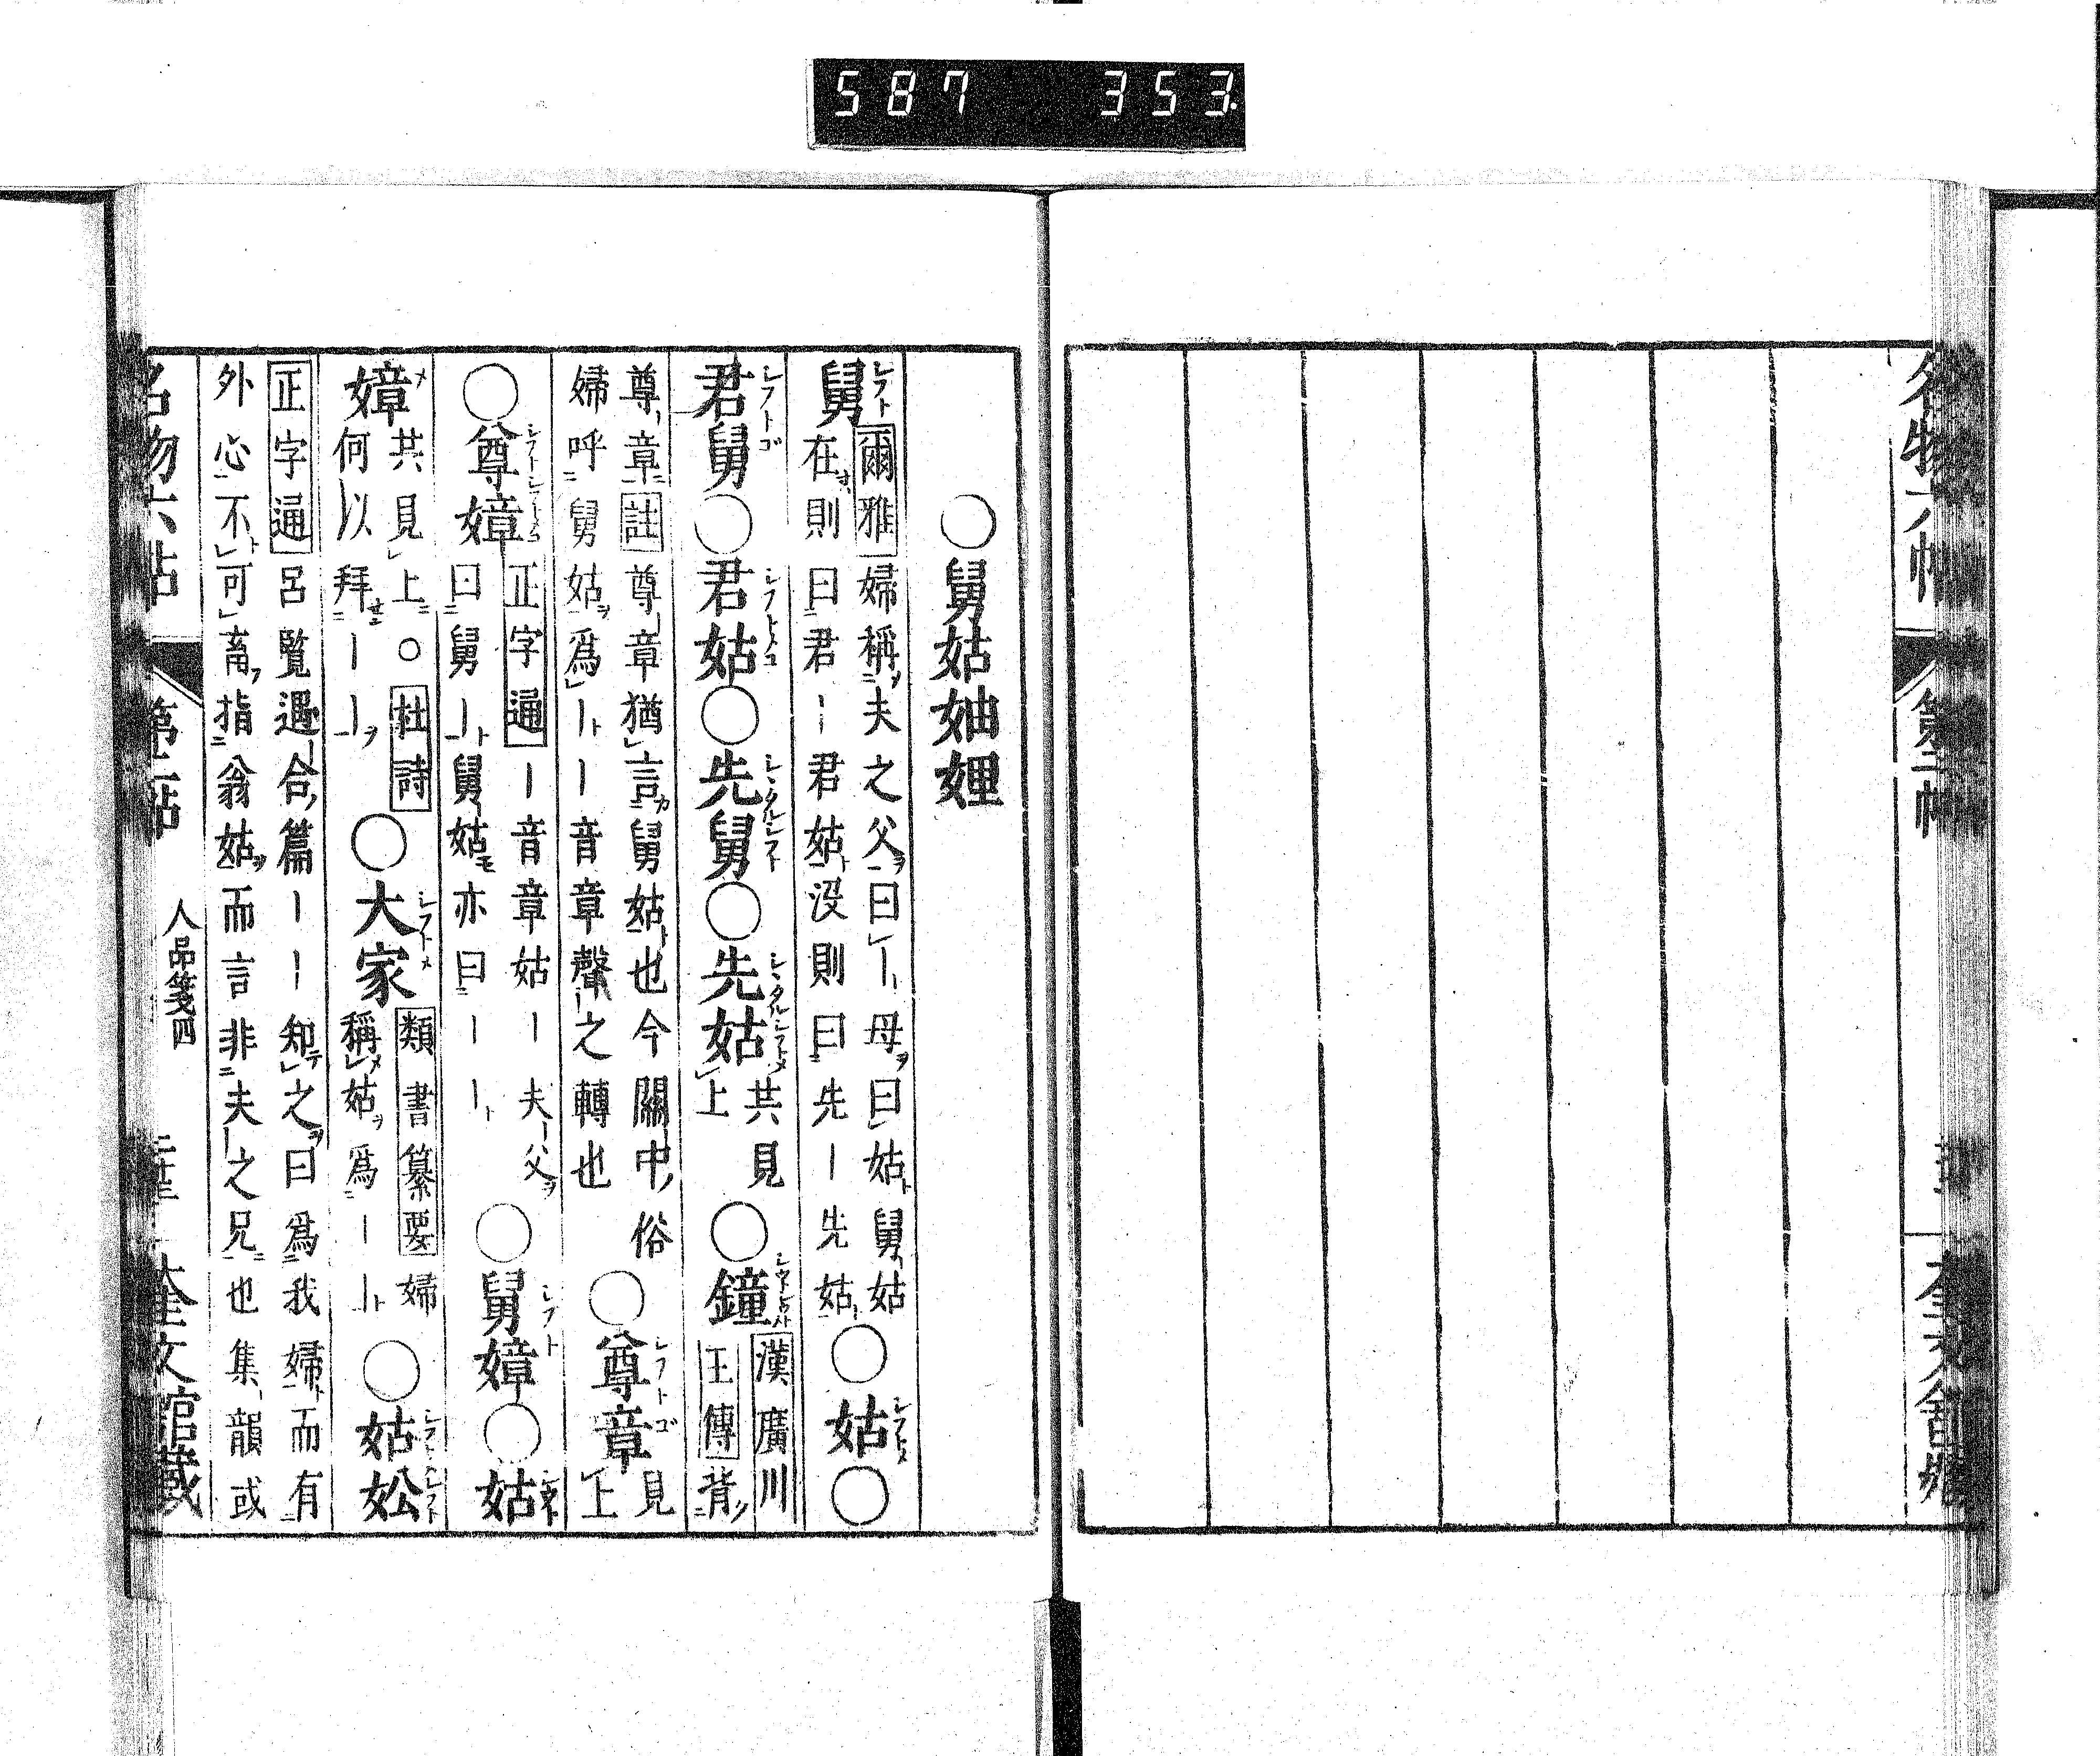 587 353
名物六帖 第二帖
○舅姑妯娌
舅
爾雅婦稱夫之父曰｜母曰姑舅姑
在則曰君｜君姑沒則曰先｜先姑
○姑○
君舅○君姑○先舅○先姑
共見
上
○鐘
漢廣川
王傳背
尊章註尊章猶言舅姑也今關中俗
婦呼舅姑爲｜｜音章聲之轉也
○尊章
見
上
○尊嫜
正字通｜音章姑｜夫父
曰舅｜舅姑亦曰｜｜
○舅嫜○姑
嫜
共見上○杜詩
何以拜｜｜
○大家
類書纂要婦
稱姑爲｜｜
○姑妐
正字通呂覽遇合篇｜｜知之曰爲我婦而有
外心不可畜指翁姑而言非夫之兄也集韻或
名物六帖 第二帖 人品箋四 奎文館藏